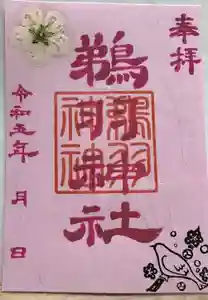 奉拝
鵜羽神社
令和五年 月 日